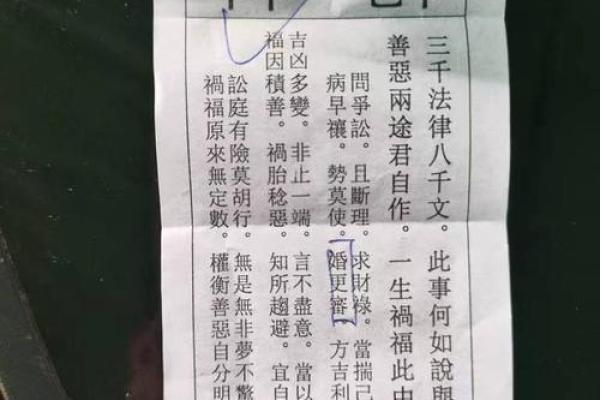 三千法律八千文。此事何如說與
善惡兩途君自作。一生禍福此中
問爭訟。且斷理。求財祿。當揣己
病早禳。勢莫使。婚更審。方吉利
吉凶多變。非止一端。言不盡意。當以
福因積善。禍胎稔惡。知所趨避。宜自
訟庭有險莫胡行。無是無非夢不驚
禍福原來無定數。權衡善惡自分明